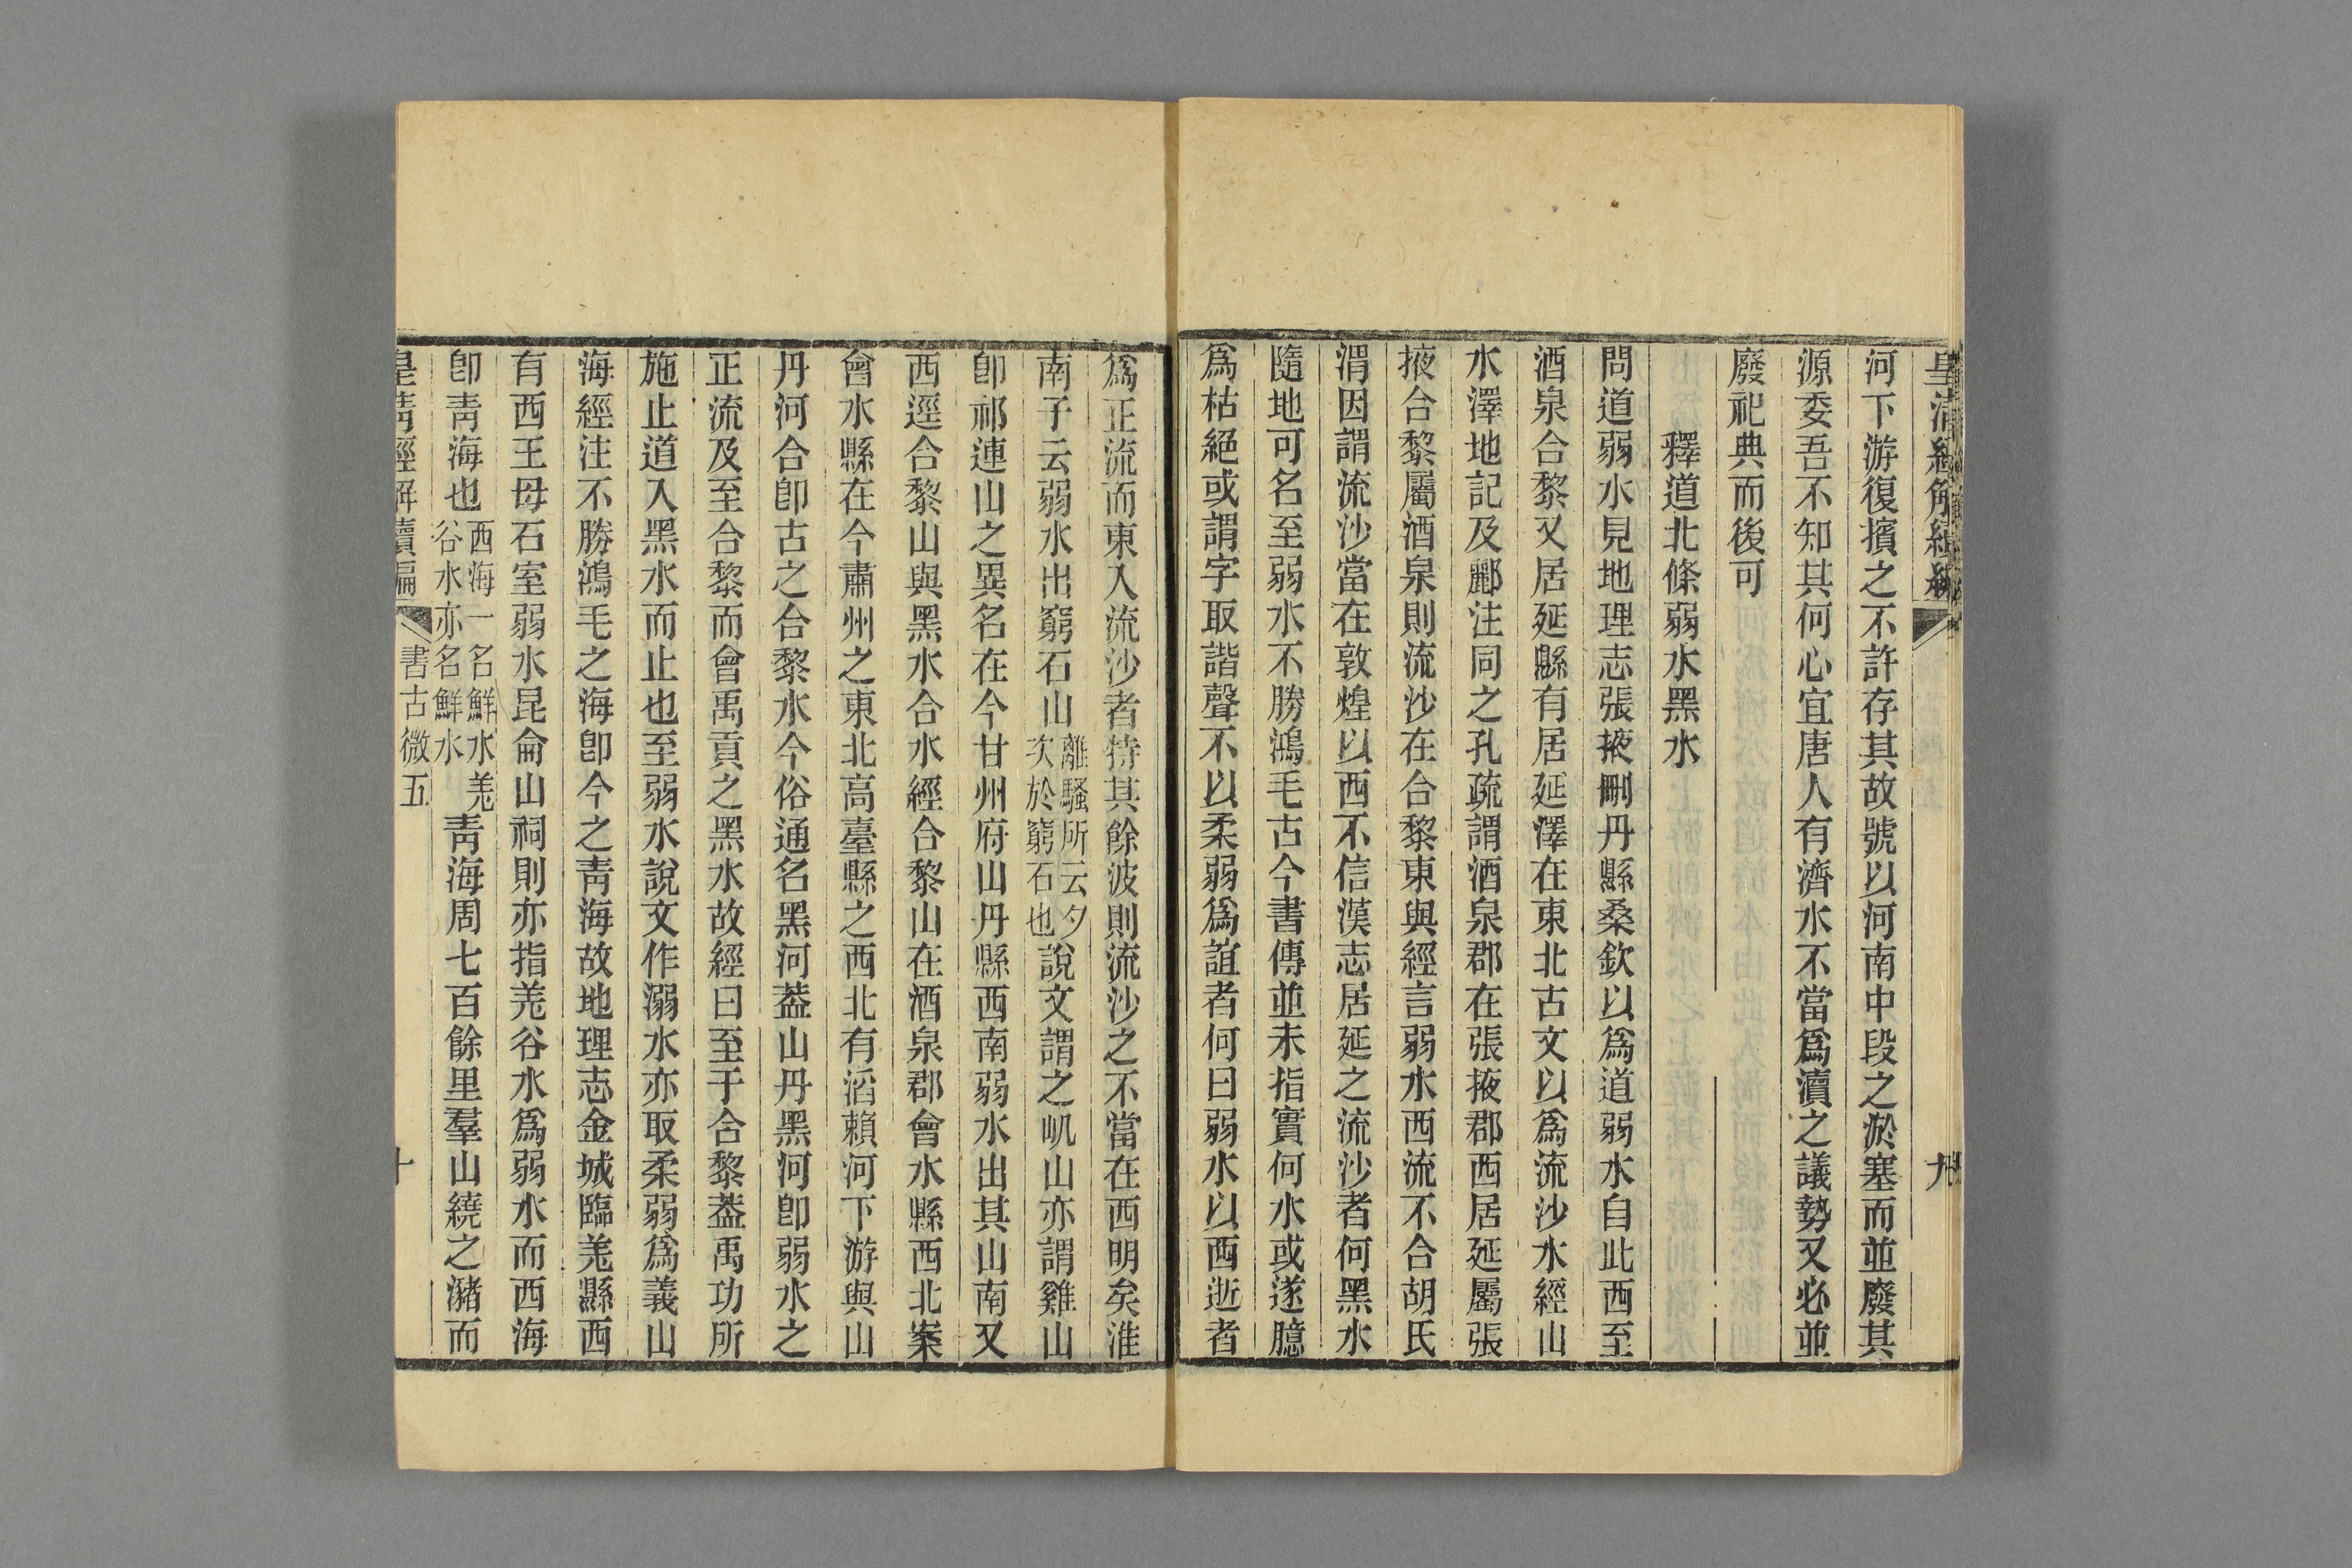 皇清經解續編
九
河下游復擯之不許存其故號以河南中段之淤塞而並廢其
源委吾不知其何心宜唐人有濟水不當爲瀆之議勢又必並
廢祀典而後可
釋道北條弱水黑水
問道弱水見地理志張掖刪丹縣桑欽以爲道弱水自此西至
酒泉合黎又居延縣有居延澤在東北古文以爲流沙水經山
水澤地記及酈注同之孔疏謂酒泉郡在張掖郡西居延屬張
掖合黎屬酒泉則流沙在合黎東與經言弱水西流不合胡氏
渭因謂流沙當在敦煌以西不信漢志居延之流沙者何黑水
隨地可名至弱水不勝鴻毛古今書傳並未指實何水或遂臆
爲枯絕或謂字取諧聲不以柔弱爲誼者何曰弱水以西逝者
爲正流而東入流沙者特其餘波則流沙之不當在西明矣淮
南子云弱水出窮石山離騷所云夕次於窮石也說文謂之𡶏山亦謂雞山
卽祁連山之異名在今甘州府山丹縣西南弱水出其山南又
西逕合黎山與黑水合水經合黎山在酒泉郡會水縣西北案
會水縣在今肅州之東北高臺縣之西北有滔賴河下游與山
丹河合卽古之合黎水今俗通名黑河葢山丹黑河卽弱水之
正流及至合黎而會禹貢之黑水故經曰至于合黎葢禹功所
施止道入黑水而止也至弱水說文作溺水亦取柔弱爲義山
海經注不勝鴻毛之海卽今之青海故地理志金城臨羌縣西
有西王母石室弱水昆侖山祠則亦指羌谷水爲弱水而西海
卽青海也西海一名鮮水羌谷水亦名鮮水青海周七百餘里羣山繞之瀦而
皇清經解續編
書古微五
十